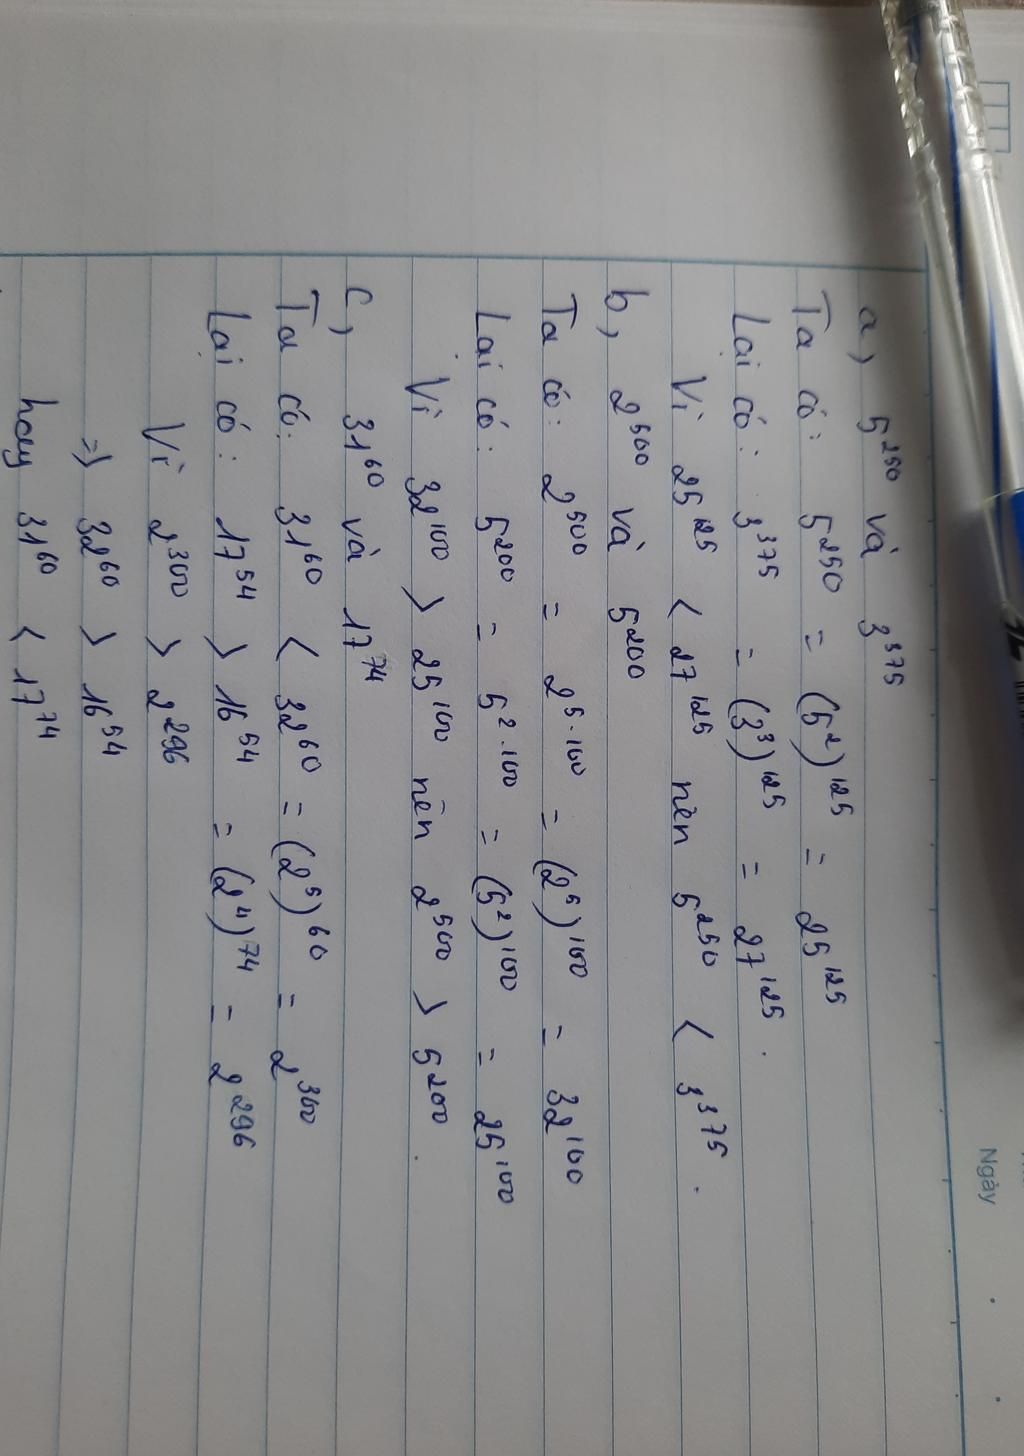 Ngày
a, 5²⁵⁰ và 3³⁷⁵
Ta có: 5²⁵⁰ = (5²)¹²⁵ = 25¹²⁵
Lại có: 3³⁷⁵ = (3³)¹²⁵ = 27¹²⁵.
Vì 25¹²⁵ < 27¹²⁵ nên 5²⁵⁰ < 3³⁷⁵.
b, 2⁵⁰⁰ và 5²⁰⁰
Ta có: 2⁵⁰⁰ = 2⁵·¹⁰⁰ = (2⁵)¹⁰⁰ = 32¹⁰⁰
Lại có: 5²⁰⁰ = 5²·¹⁰⁰ = (5²)¹⁰⁰ = 25¹⁰⁰
Vì 32¹⁰⁰ > 25¹⁰⁰ nên 2⁵⁰⁰ > 5²⁰⁰.
c, 31⁶⁰ và 17⁷⁴
Ta có: 31⁶⁰ < 32⁶⁰ = (2⁵)⁶⁰ = 2³⁰⁰
Lại có: 17⁵⁴ > 16⁵⁴ = (2⁴)⁷⁴ = 2²⁹⁶
Vì 2³⁰⁰ > 2²⁹⁶
=> 32⁶⁰ > 16⁵⁴
hay 31⁶⁰ < 17⁷⁴